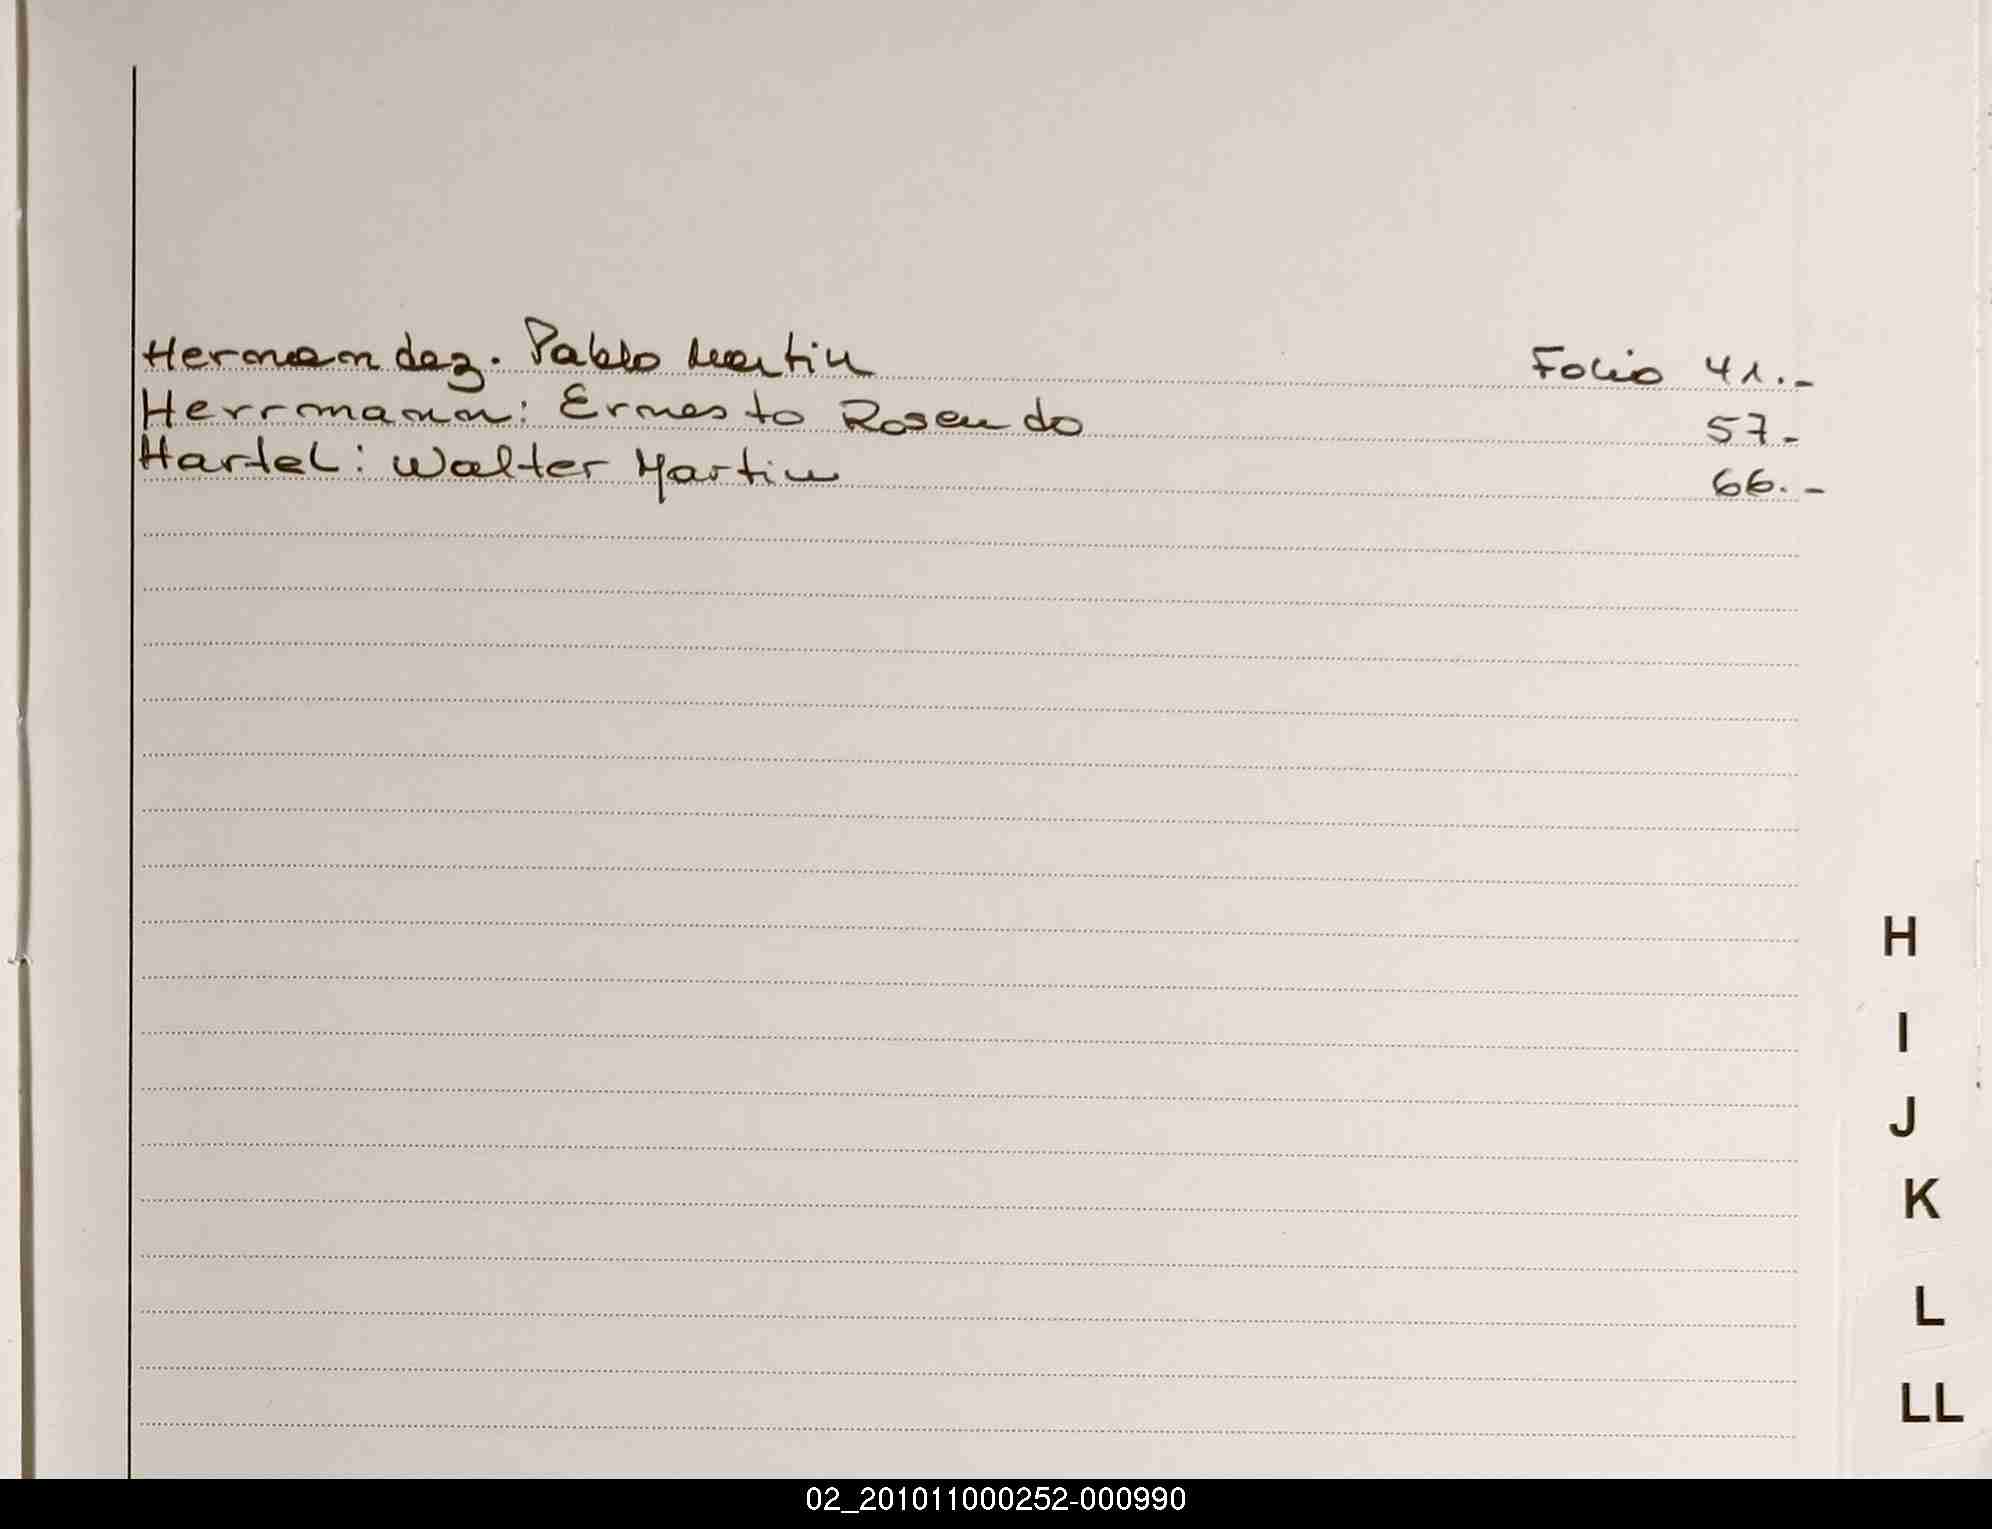 Hermandez. Pablo Martin Folio 41.-
Herrmann: Ernesto Rosendo 57-
Hartel: Walter Martin 66.-
H
I
J
K
L
LL
02_201011000252-000990